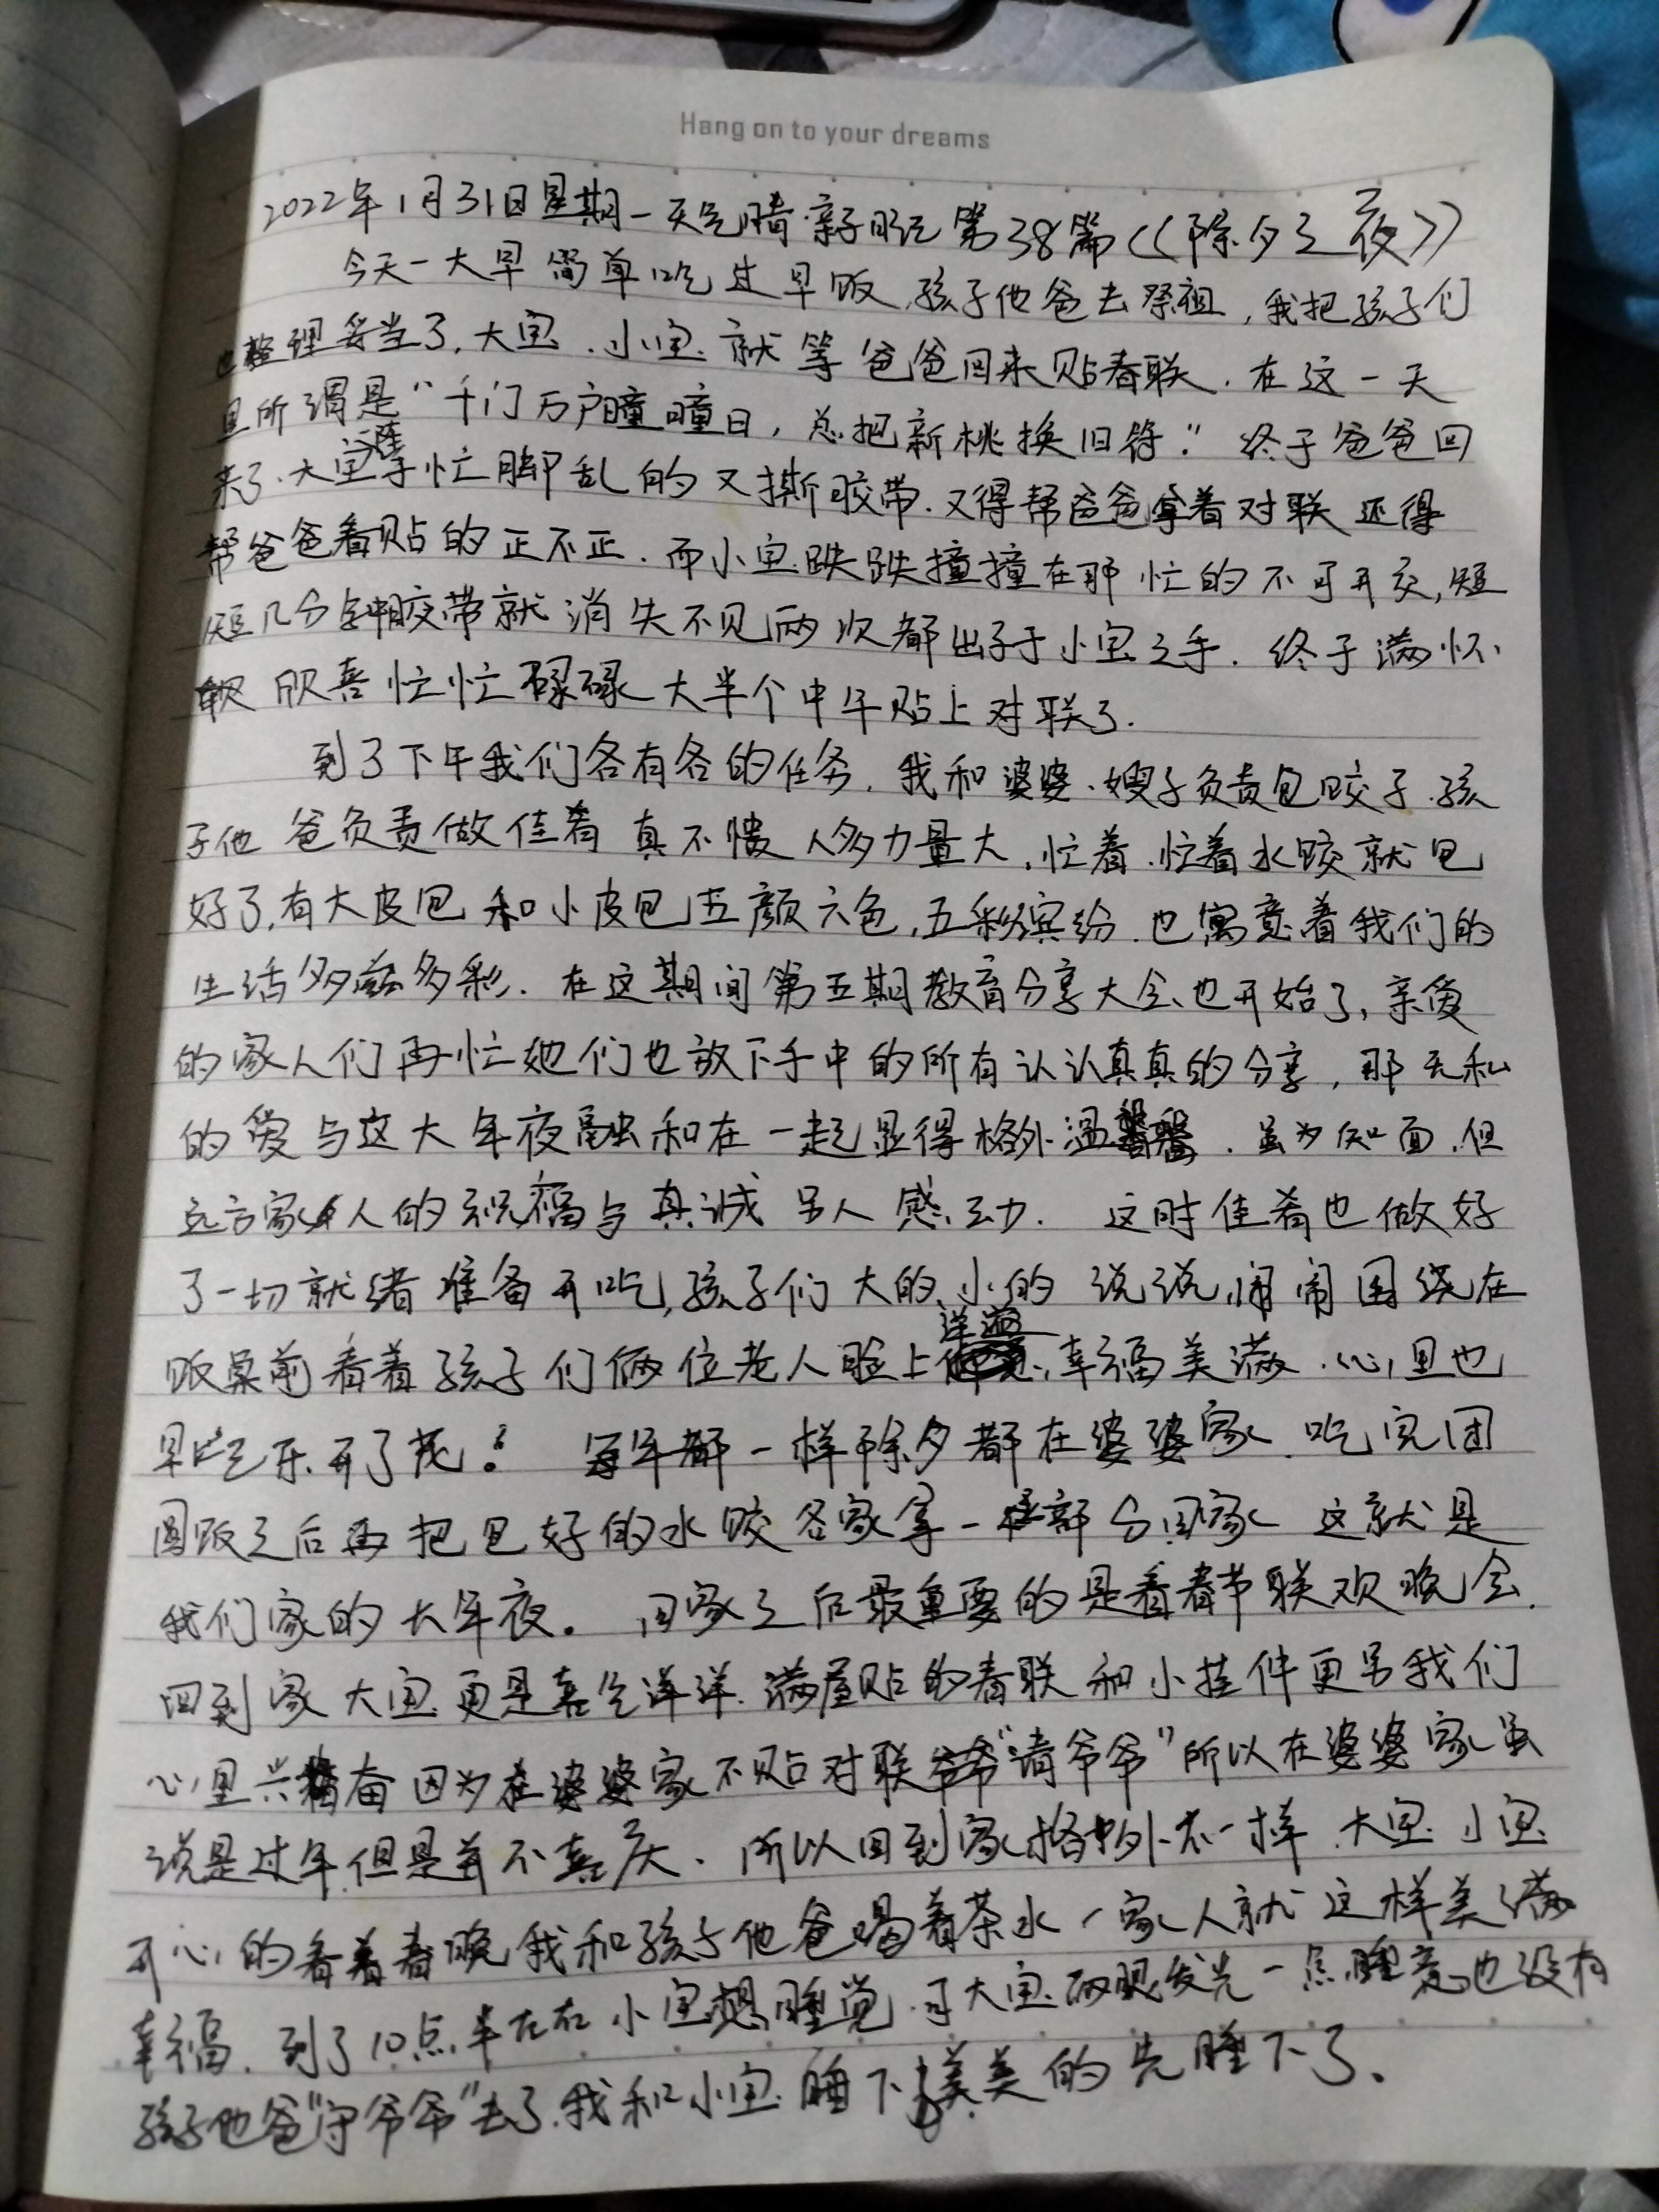 Hang on to your dreams
2022年1月31日星期一天气晴·亲子日记第38篇《除夕之夜》
今天一大早简单吃过早饭,孩子他爸去祭祖,我把孩子们
也整理妥当了,大宝、小宝就等爸爸回来贴春联.在这一天
里所谓是"千门万户曈曈日,总把新桃换旧符."终于爸爸回
来了.大宝手忙脚乱的又撕胶带.又得帮爸爸拿着对联还得
帮爸爸看贴的正不正.而小宝跌跌撞撞在那忙的不可开交,短
短几分钟胶带就消失不见两次都出于小宝之手.终于满怀
欣喜忙忙碌碌大半个中午贴上对联了.
到了下午我们各有各的任务.我和婆婆、嫂子负责包饺子.孩
子他爸负责做佳肴真不愧人多力量大,忙着.忙着水饺就包
好了,有大皮包和小皮包五颜六色,五彩缤纷.也寓意着我们的
生活多姿多彩.在这期间第五期教育分享大会也开始了,亲爱
的家人们再忙她们也放下手中的所有认认真真的分享,那无私
的爱与这大年夜融和在一起显得格外温馨.虽为知面.但
远方家人的祝福与真诚另人感动.这时佳肴也做好
了一切就绪准备开吃,孩子们大的、小的说说,闹闹围绕在
洋溢
饭桌前看着孩子们俩位老人脸上幸福美满.心里也
早已乐开了花!每年都一样除夕都在婆婆家.吃完团
圆饭之后再把包好的水饺各家拿一部分回家这就是
我们家的大年夜。回家之后最重要的是看春节联欢晚会.
回到家大宝更是喜气洋洋.满屋贴的春联和小挂件更另我们
心里兴奋因为在婆婆家不贴对联"请爷爷"所以在婆婆家虽
说是过年但是并不喜庆.所以回到家格外不一样.大宝小宝
开心的看着春晚我和孩子他爸喝着茶水一家人就这样美满
幸福.到了10点半左右小宝想睡觉.可大宝两眼发光一点睡意也没有
孩子他爸"守爷爷"去了.我和小宝睡下美美的先睡下了、